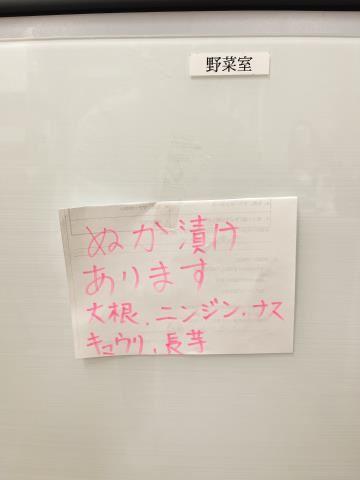 野菜室
ぬか漬け
あります
大根、ニンジン、ナス
キュウリ、長芋